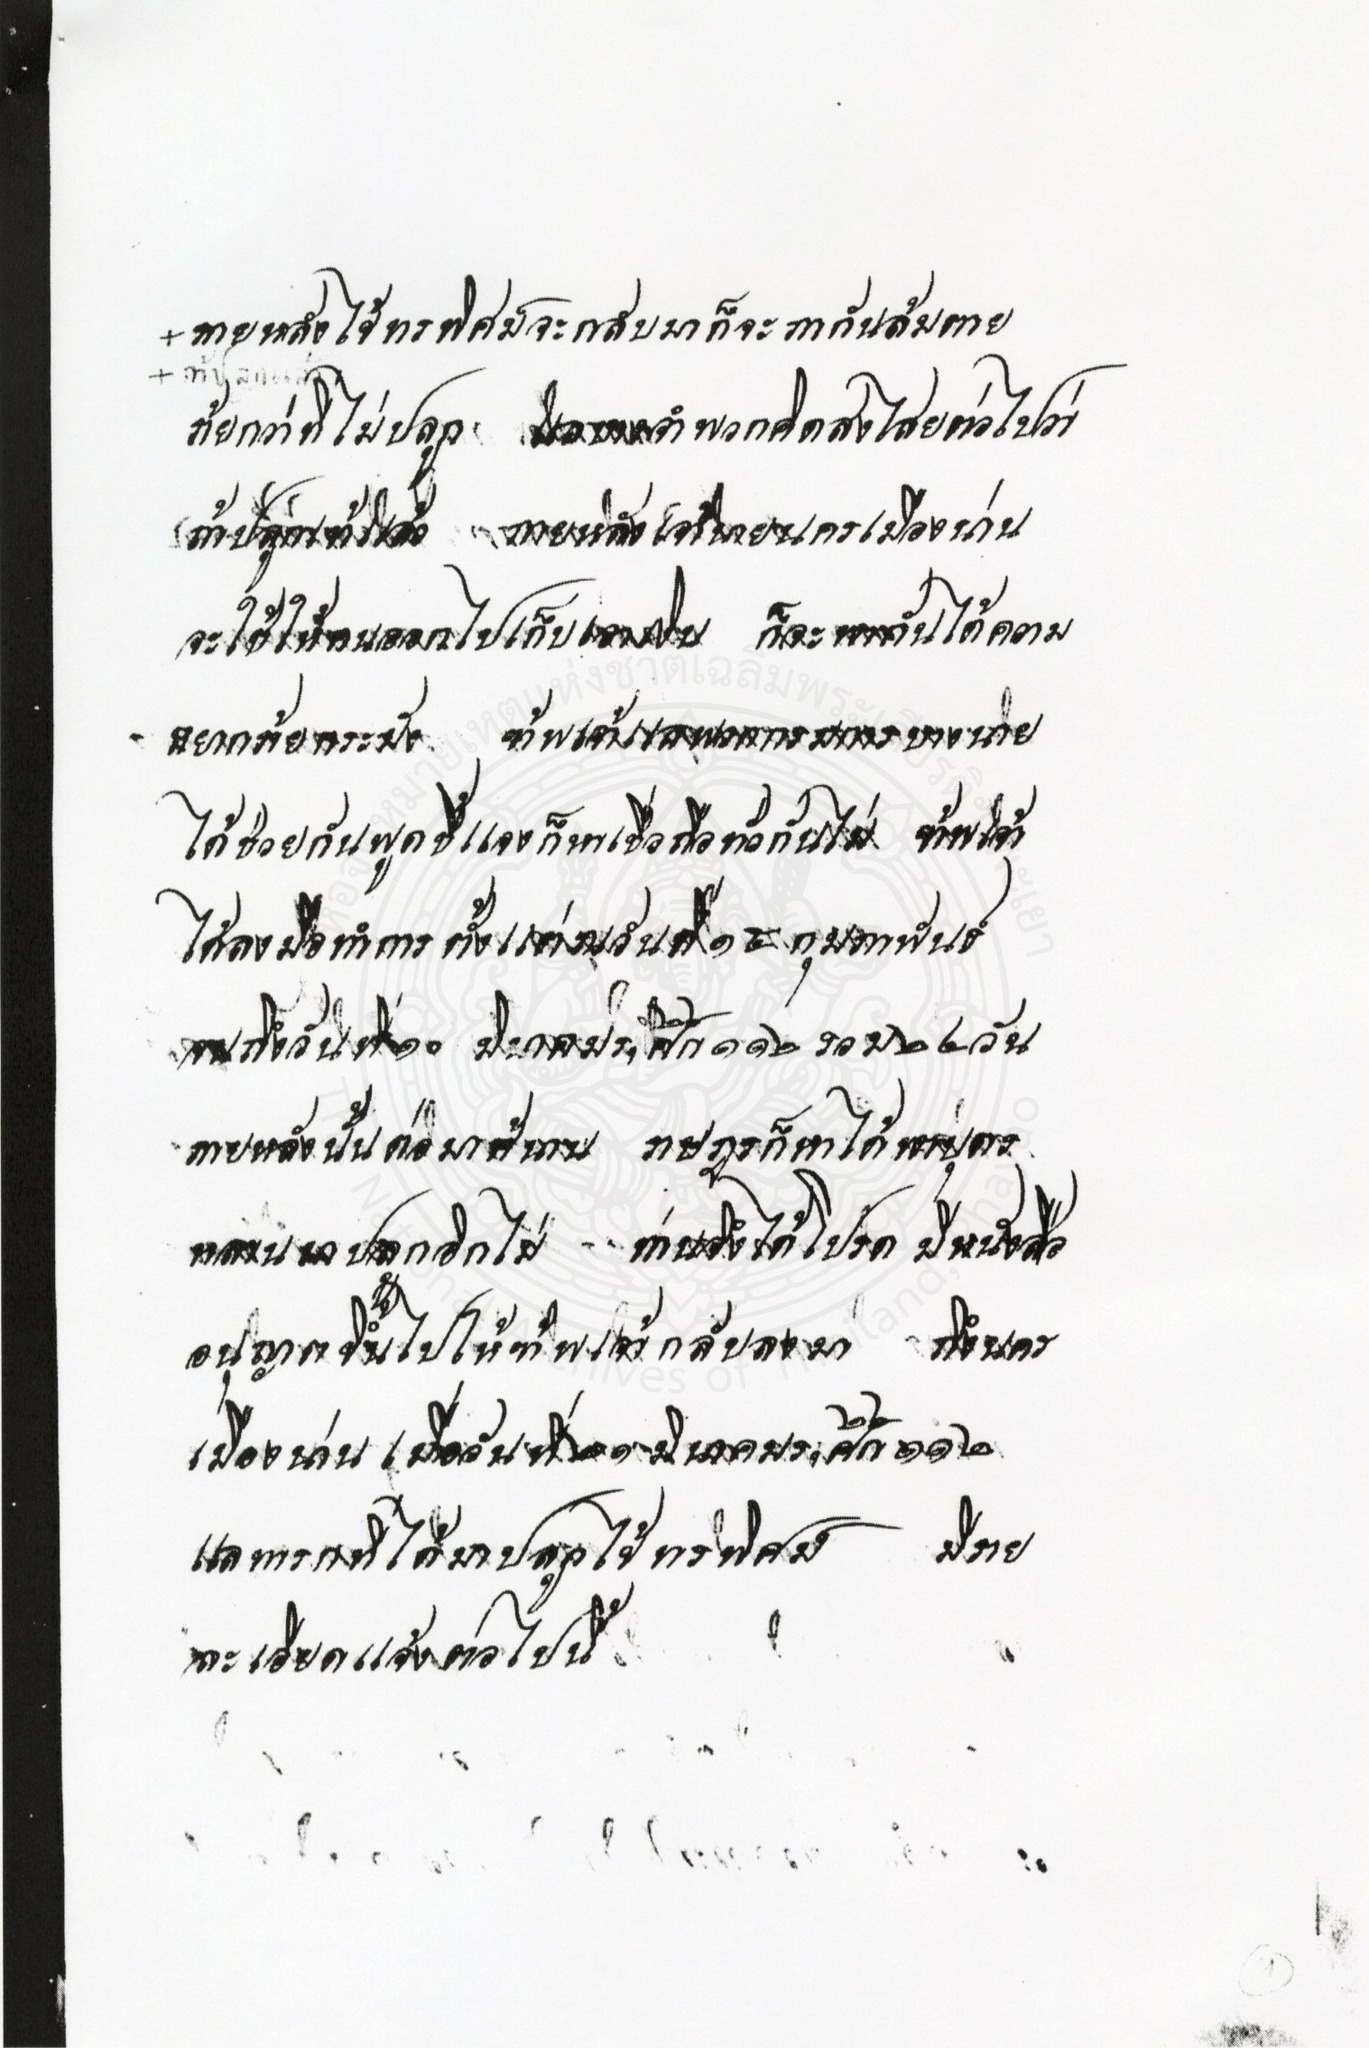 +ภายหลังไข้ทรพิศม์จะกลับมาก็จะพากันล้มตาย
+ถ้าปลูกแล้ว
ร้ายกว่าที่ไม่ปลูก จำพวกคิดสงไสยต่อไปว่า
ถ้าปลูกแล้ว ภายหลังเจ้านายนครเมืองน่าน
จะใช้ให้คนออกไปเก็บเอาเงิน ก็จะพากันได้ความ
อยากร้ายกระมัง ข้าพเจ้าแลพวกกรมการบางนาย
ได้ช่วยกันพูดชี้แจงก็หาเชื่อถือทั่วกันไม่ ข้าพเจ้า
ได้ลงมือทำการตั้งแต่ณวันที่ ๑๕ กุมภาพันธ์
จนถึงวันที่ ๑๐ มีนาคมร,ศก ๑๑๒ รวม ๒๔ วัน
ภายหลังนั้นต่อมาช้านาน ราษฎรก็หาได้พาบุตร
หลานมาปลูกอีกไม่ ท่านจึงได้โปรดมีหนังสือ
อนุญาตขึ้นไปให้ข้าพเจ้ากลับลงมา ถึงนคร
เมืองน่าน เมื่อวันที่ ๒๑ มีนาคมร,ศก ๑๑๒
แลทารกที่ได้มาปลูกไข้ทรพิศม์ มีราย
ละเอียดแจ้งต่อไปนี้
หอจดหมายเหตุแห่งชาติเฉลิมพระเกียรติ
National Archives of Thailand